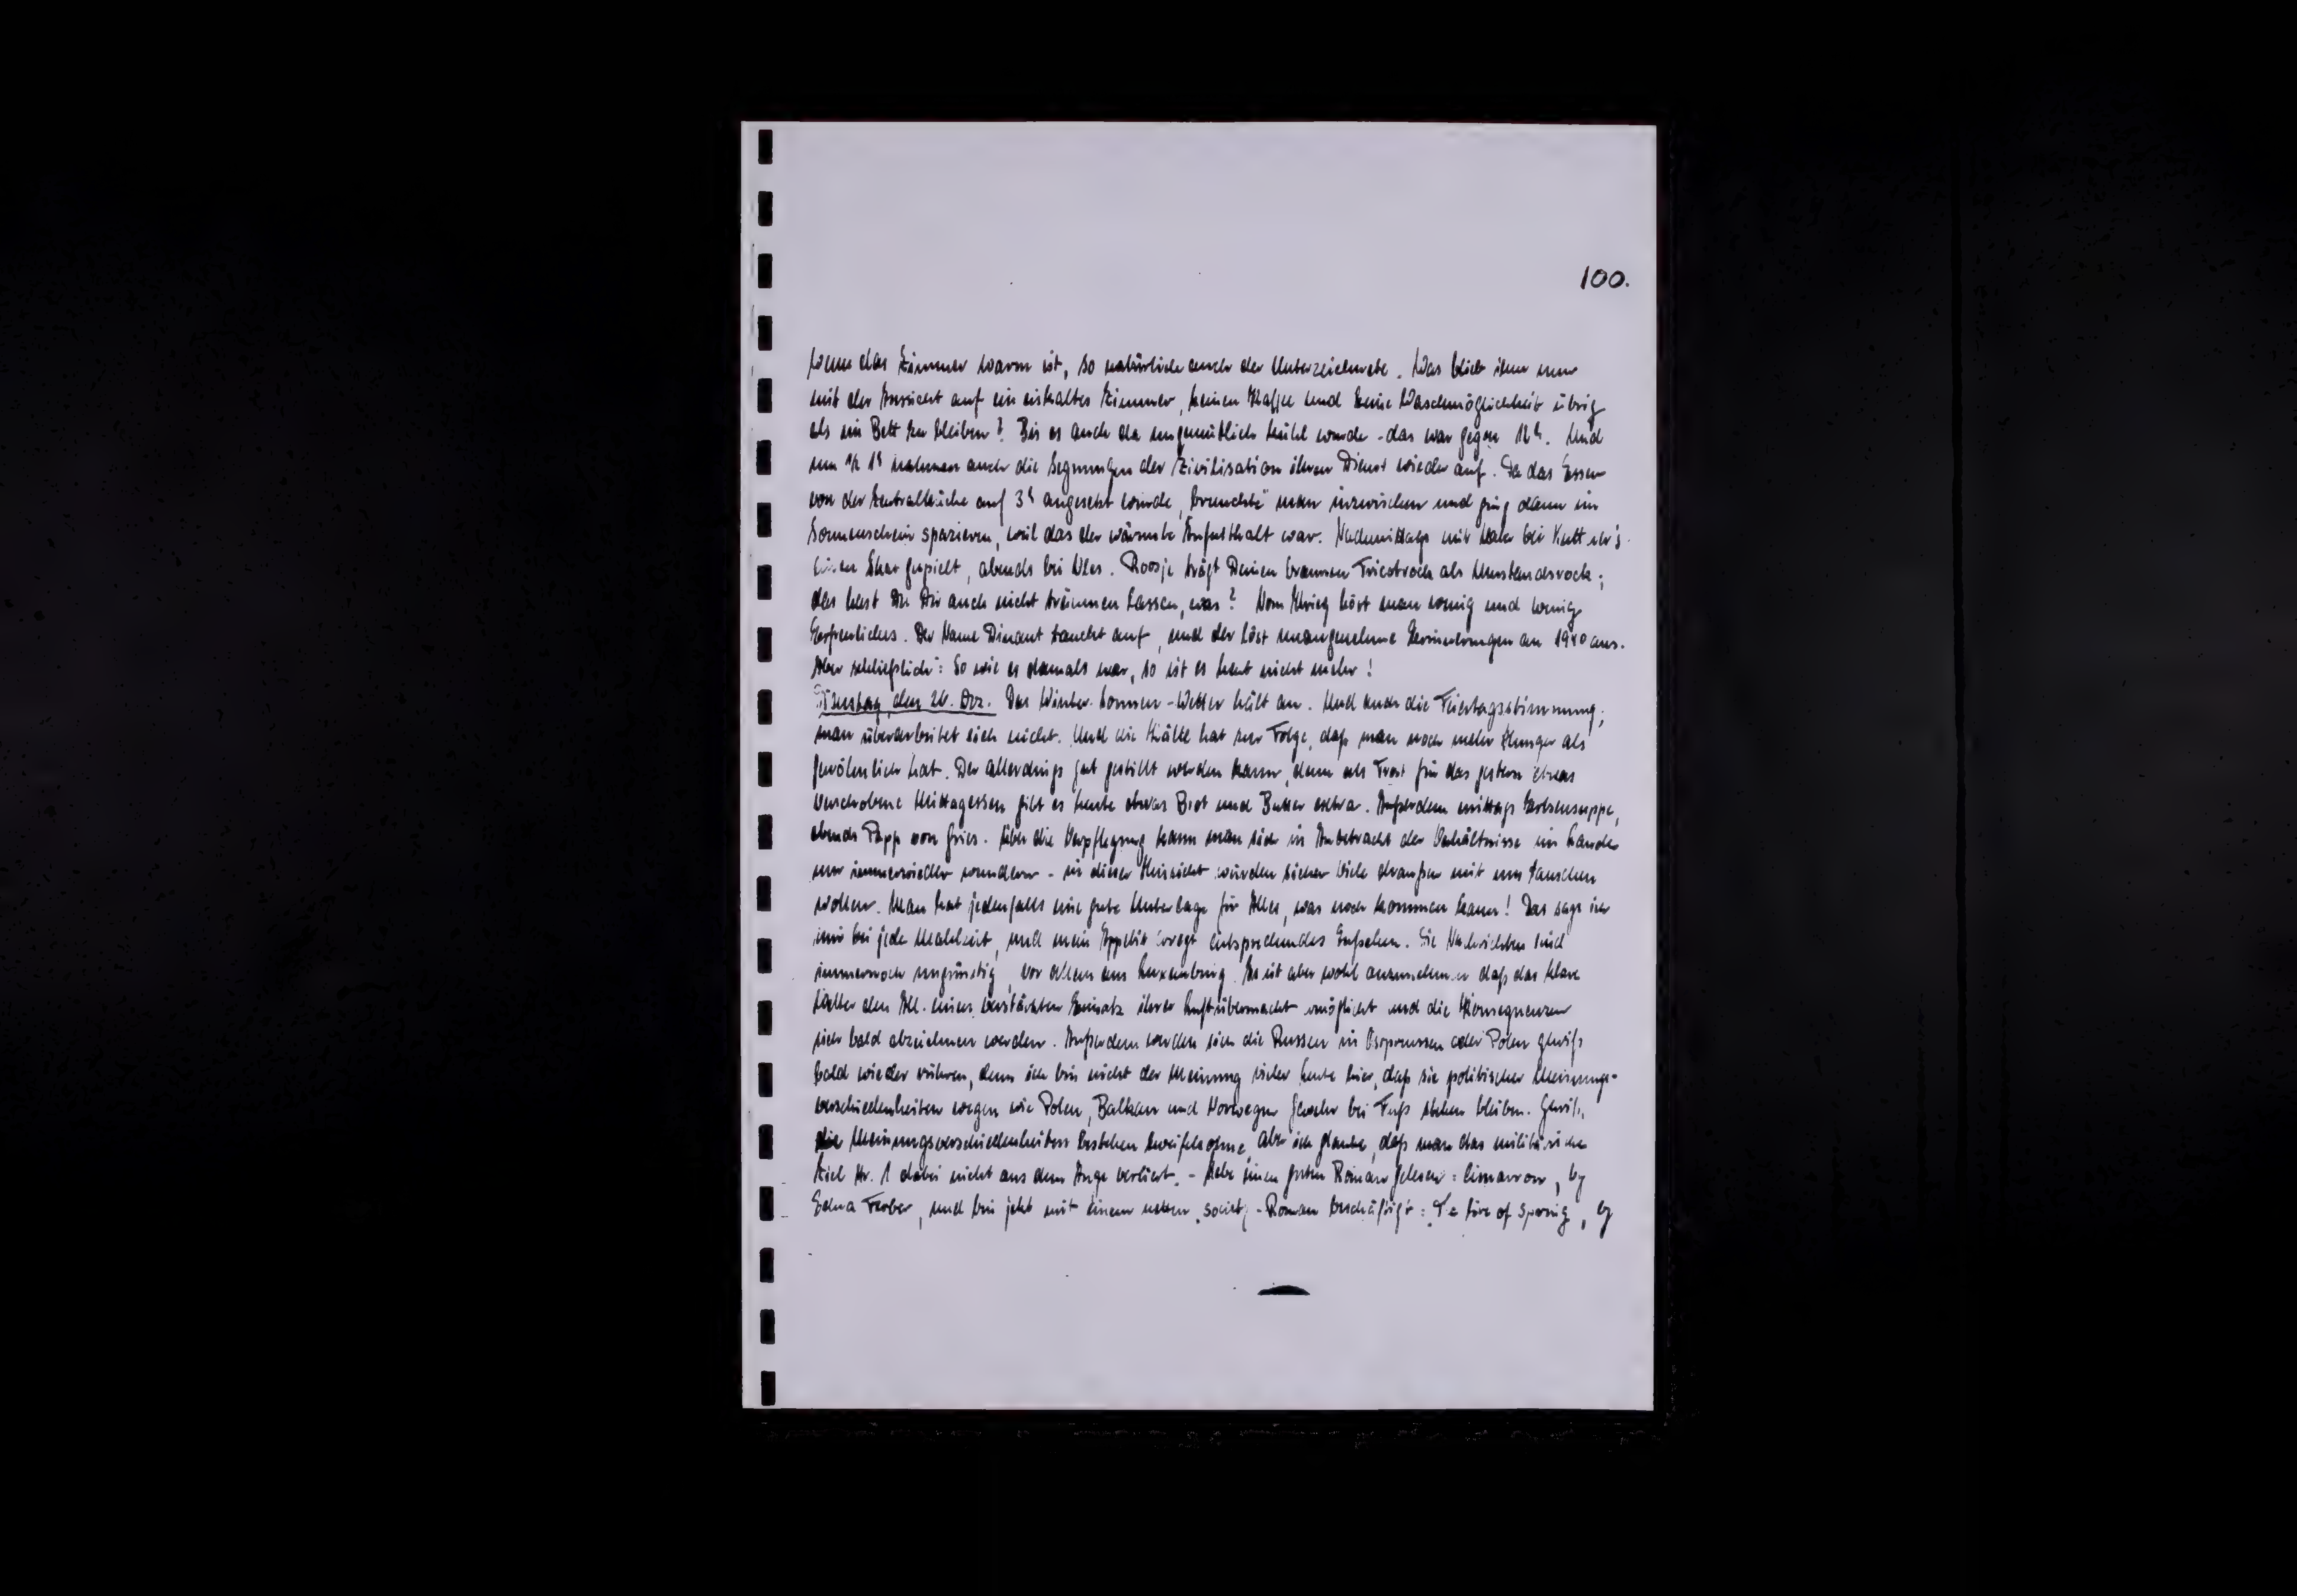 100.
Wenn das Zimmer warm ist, so natürlich auch der Unterzeichnete. Was blieb ihm nun
mit der Aussicht auf ein eiskaltes Zimmer, keinen Kaffee und keine Waschmöglichkeit übrig
als im Bett zu bleiben? Bis es auch da ungemütlich kühl wurde - das war gegen 12h. Und
um ½ 1h nahmen auch die Segnungen der Zivilisation ihren Dienst wieder auf. Da das Essen
von der Zentralküche auf 3h angesetzt wurde, man inzwischen und ging dann im
Sonnenschein spazieren, weil das der wärmste Aufenthalt war. Nachmittags mit bei
einen Skat gespielt, abends bei Roosje trägt Deinen braunen Tricotrock als Umstandsrock;
das hast Du Dir auch nicht träumen lassen, was? Vom Krieg hört man wenig und wenig
Erfreuliches. Der Name Dinant taucht auf, und der löst unangenehme Erinnerungen an 1940 aus.
Aber schließlich: So wie es damals war, so ist es heut nicht mehr!
Dienstag, den 26. Dez. Das Winter-Sonnen-Wetter hält an. Und auch die Feiertagsstimmung;
man überarbeitet sich nicht. Und die Kälte hat zur Folge, daß man noch mehr Hunger als
gewöhnlich hat. Der allerdings gut gestillt werden kann, denn als Trost für das gestern etwas
verschobene Mittagessen gibt es heute etwas Brot und Butter extra. Außerdem mittags Erbsensuppe,
abends Papp von Gries. Über die Verpflegung kann man sich in Anbetracht der Verhältnisse im Lande
nur immerwieder wundern - in dieser Hinsicht würden sicher viele draußen mit uns tauschen
wollen. Man hat jedenfalls eine gute Unterlage für Alles, was noch kommen kann! Das sage ich
mir bei jeder Mahlzeit, und mein Appetit erregt entsprechendes Aufsehen. Die Nachrichten sind
immernoch ungünstig, vor allem aus Luxemburg. Es ist aber wohl anzunehmen daß das klare
Wetter den All. einen verstärkten Einsatz ihrer Luftübermacht ermöglicht und die Konsequenzen
sich bald abzeichnen werden. Außerdem werden sich die Russen in Ostpreussen oder Polen gewiß
bald wieder rühren, denn ich bin nicht der Meinung vieler Leute hier, daß sie politischer Meinungs-
verschiedenheiten wegen wie Polen, Balkan und Norwegen Gewehr bei Fuß stehen bleiben. Gewiß,
die Meinungsverschiedenheiten bestehen zweifelsohne, aber ich glaube, daß man das militärische
Ziel Nr. 1 dabei nicht aus dem Auge verliert. - Habe einen guten Roman gelesen: Cimarron, by
Edna Ferber, und bin jetzt mit einem netten society-Roman beschäftigt: of Spring, by